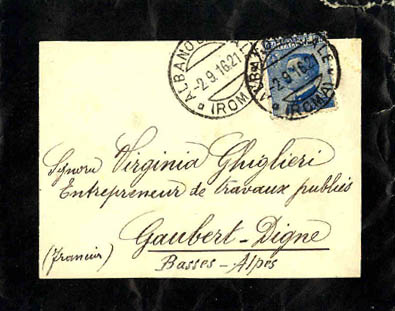 ALBANO LAZIALE
-2.9.16.21
(ROMA)
ALBANO LAZIALE
-2.9.16.21
(ROMA)
Signora Virginia Ghiglieri
Entrepreneur de travaux publiés
Gaubert-Digne
(Francia)
Basses-Alpes